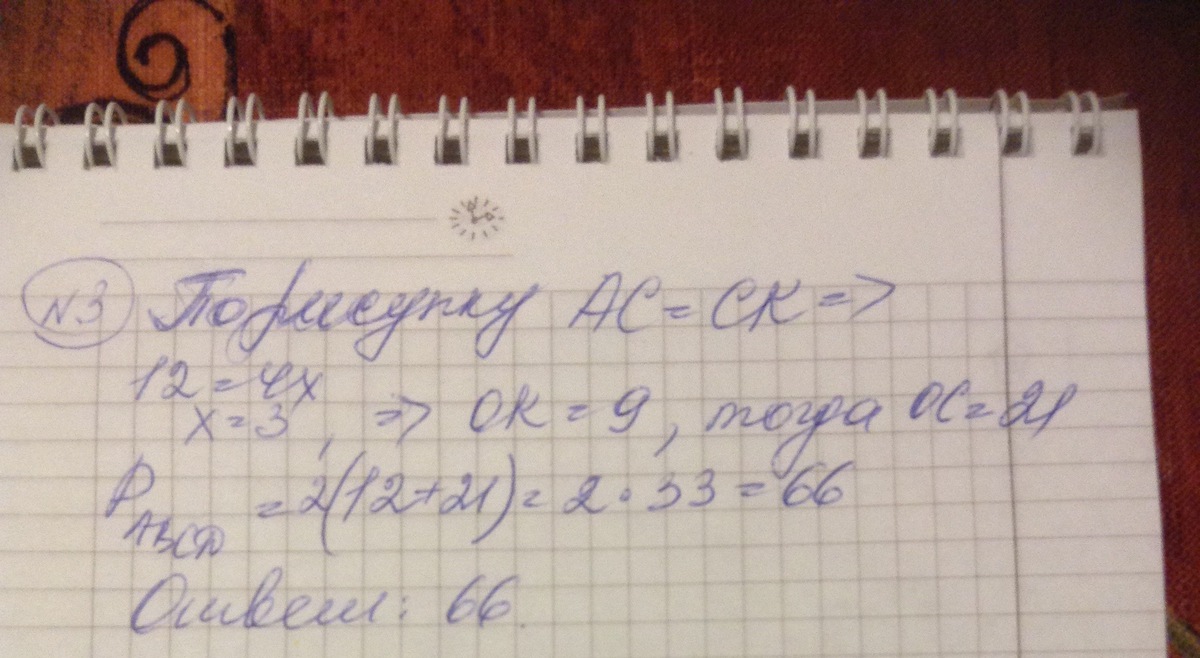 №3 По рисунку AC = CK =>
12 = 4x
x = 3, => OK = 9, тогда OC = 21
P ABCD = 2(12+21) = 2 · 33 = 66
Ответ: 66.